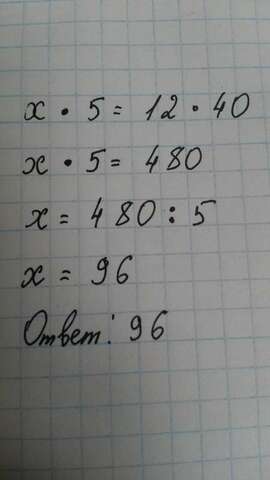 x · 5 = 12 · 40
x · 5 = 480
x = 480 : 5
x = 96
Ответ: 96